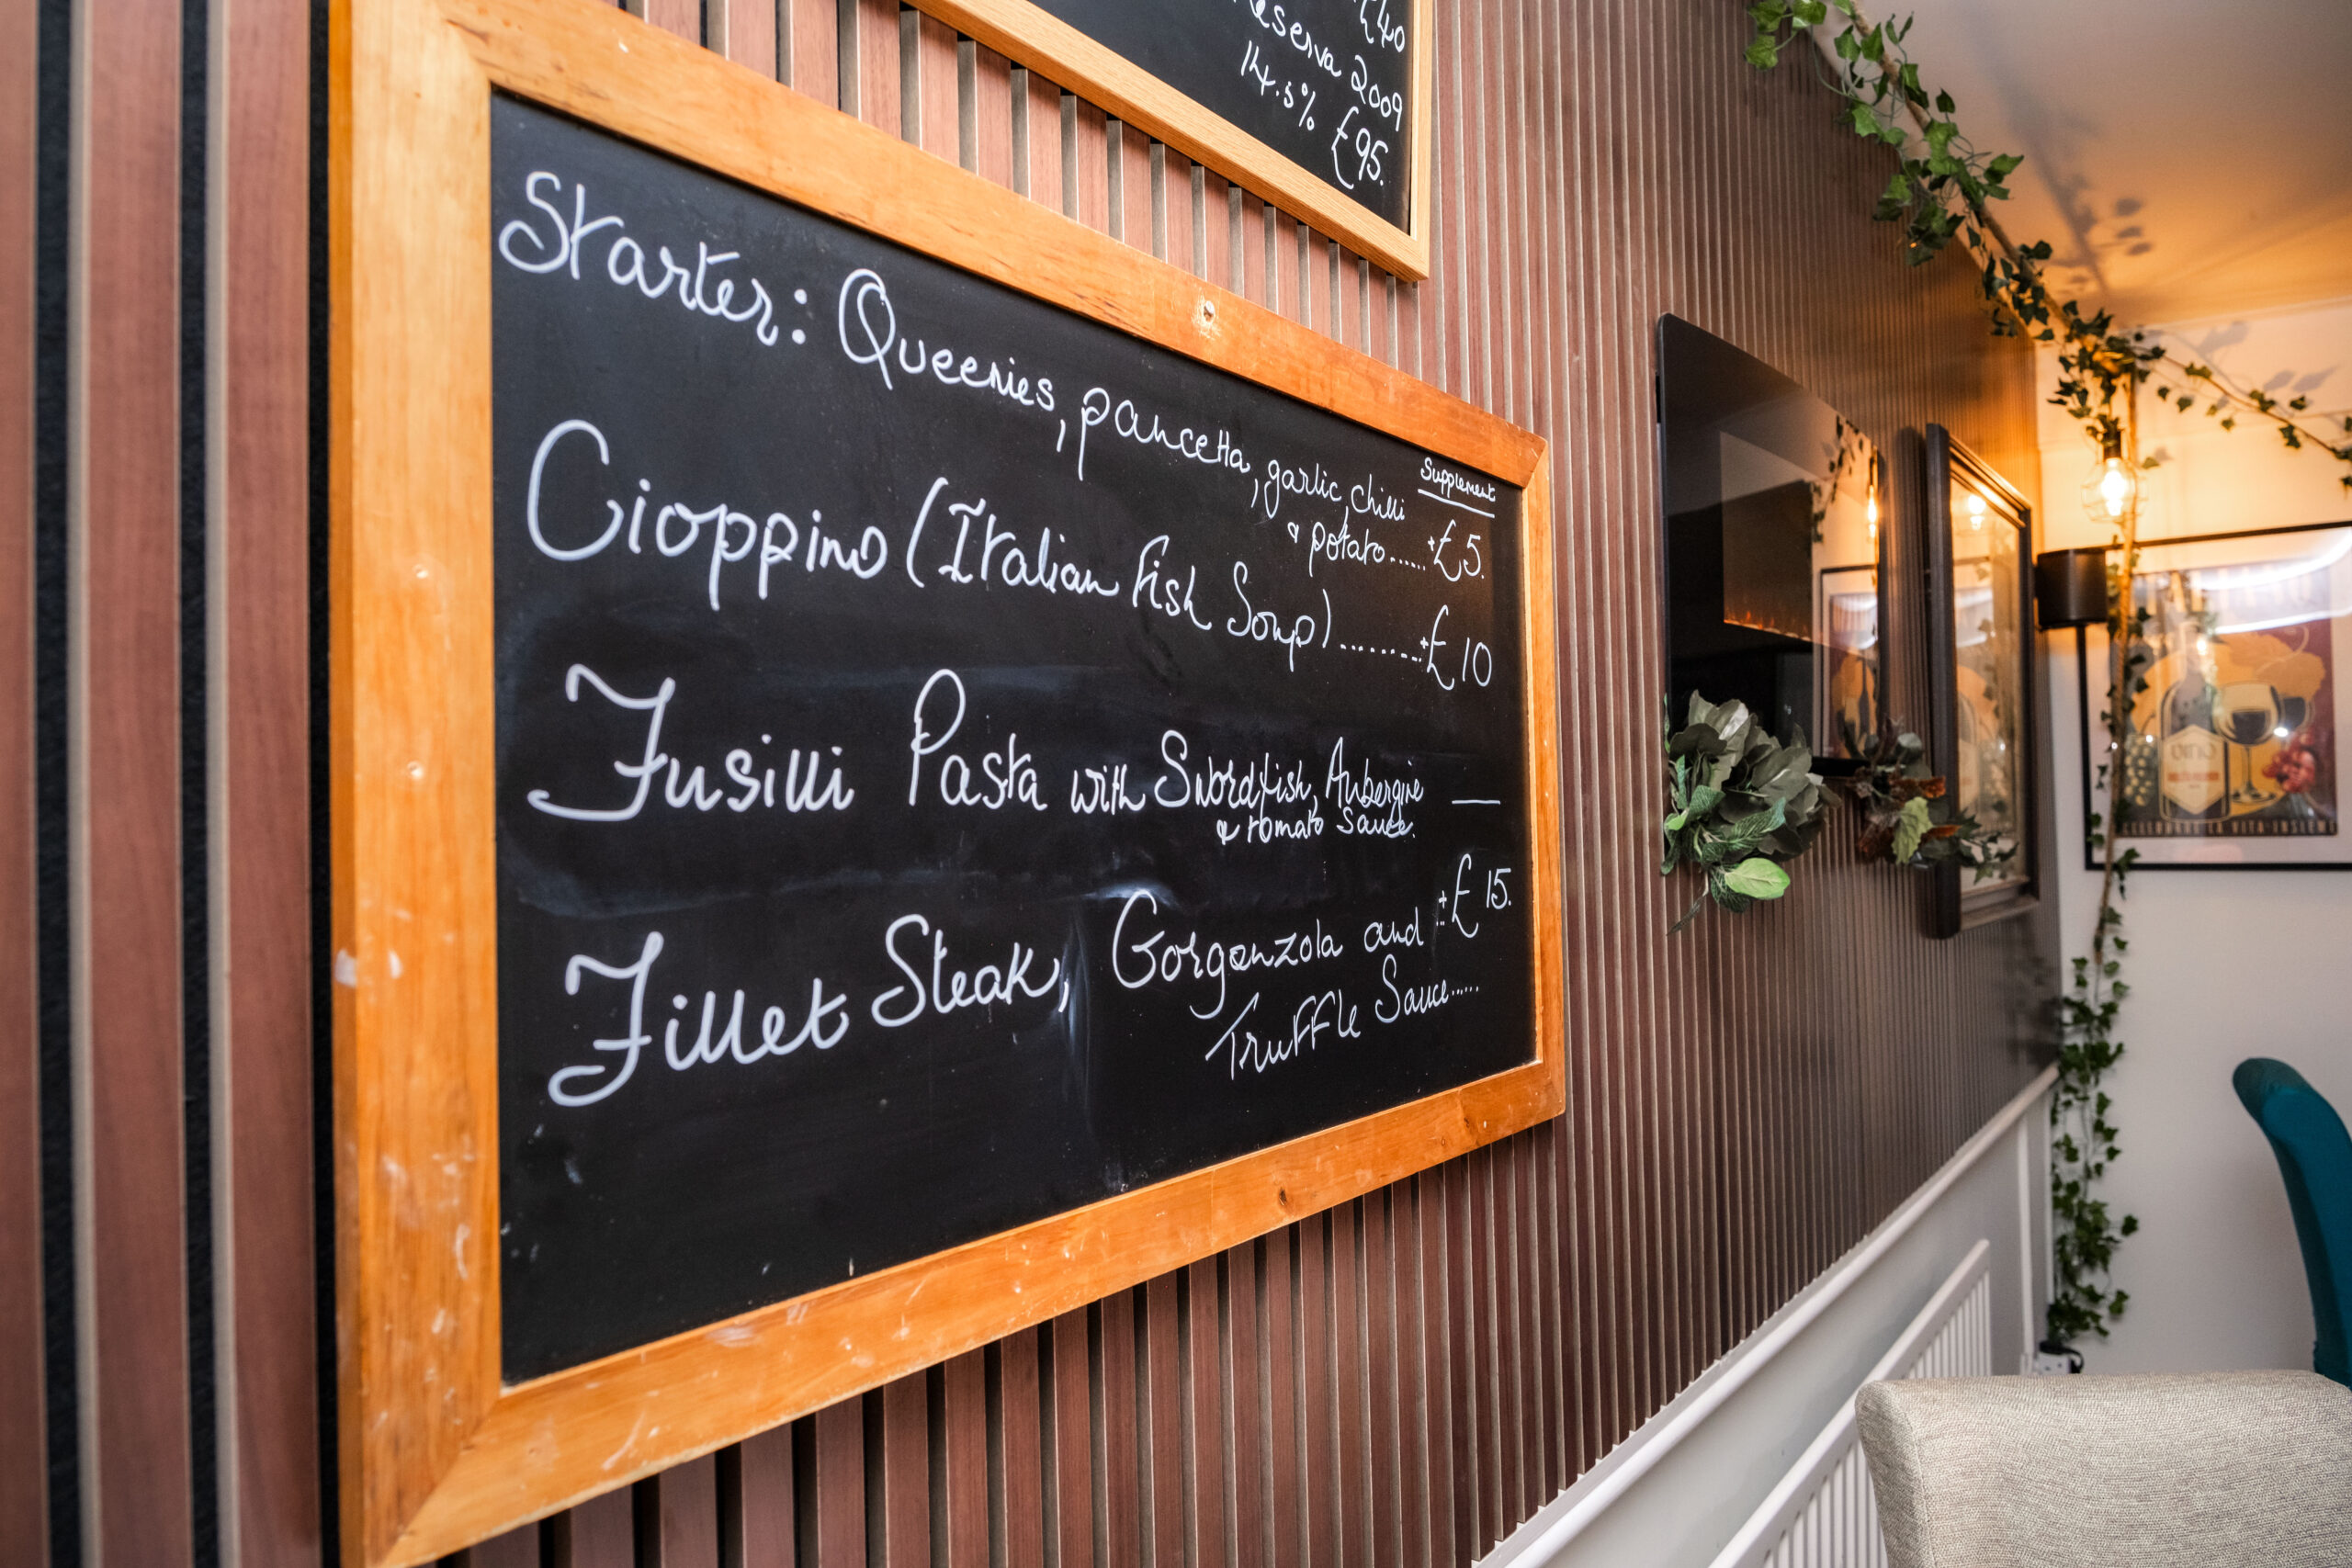 £40
Reserva 2009
14.5% £95.
Starter: Queenies, pancetta, garlic, chilli
Supplement
& potato...... +£5.
Cioppino (Italian Fish Soup)........+£10
Fusilli Pasta with Swordfish, Aubergine —
& tomato sauce.
Fillet Steak, Gorgonzola and ..+£15.
Truffle Sauce......
VINO
CELEBRATE LA VITA INSIEME